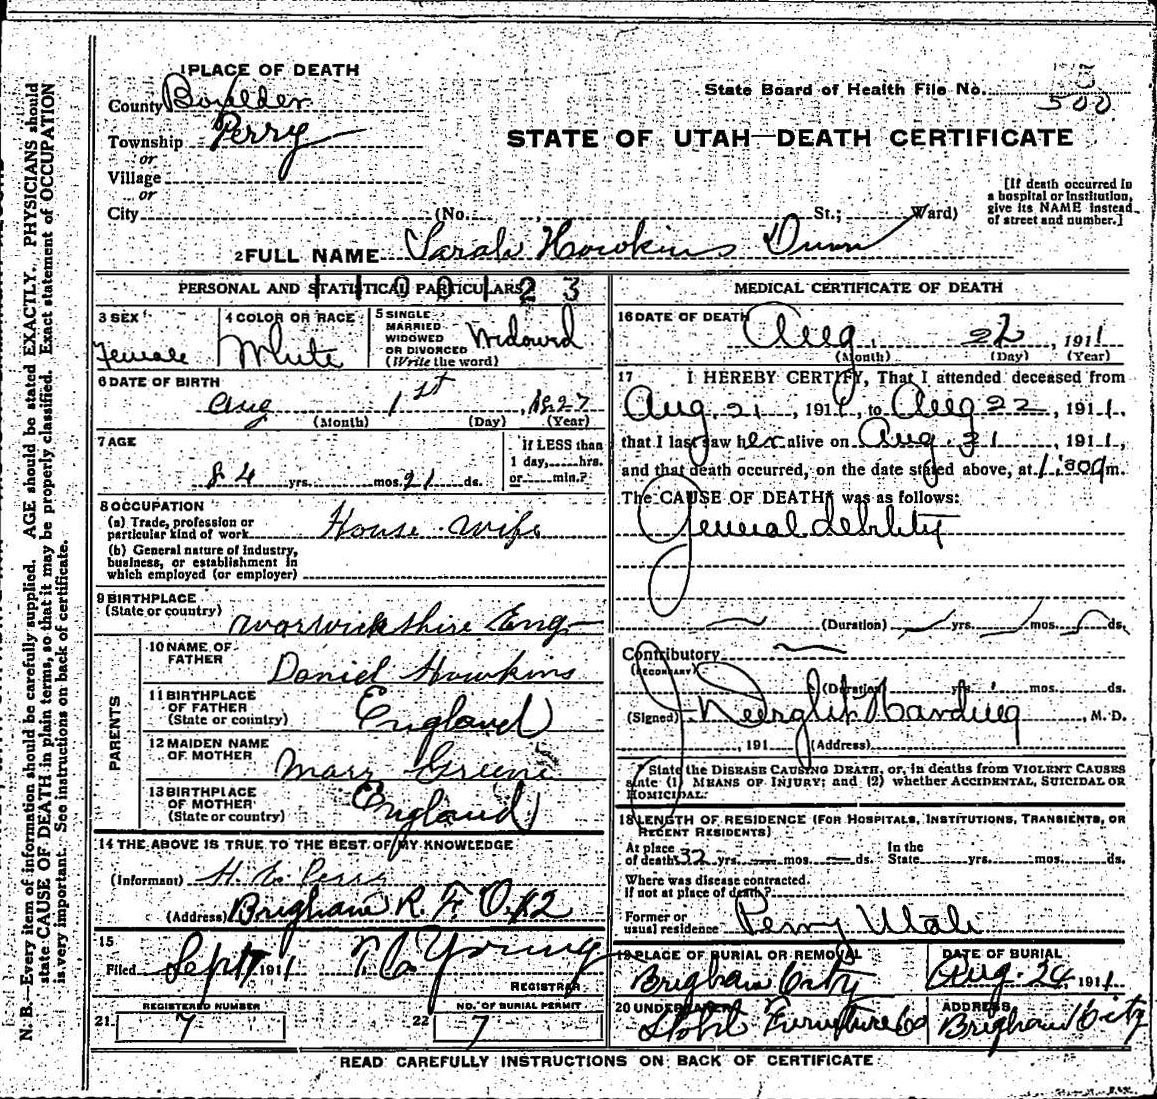 1 PLACE OF DEATH
County Boxelder
State Board of Health File No. 500
Township Perry
STATE OF UTAH—DEATH CERTIFICATE
or
Village
or
City (No. St.; Ward)
[If death occurred in a hospital or Institution, give its NAME instead of street and number.]
2 FULL NAME Sarah Hawkins Dunn
PERSONAL AND STATISTICAL PARTICULARS
3 SEX Female
4 COLOR OR RACE White
5 SINGLE MARRIED WIDOWED OR DIVORCED (Write the word) Widowd
6 DATE OF BIRTH
Aug 1st, 1827
(Month) (Day) (Year)
7 AGE
84 yrs. mos. 21 ds.
If LESS than 1 day, hrs. or min.?
8 OCCUPATION
(a) Trade, profession or particular kind of work House-wife
(b) General nature of industry, business, or establishment in which employed (or employer)
9 BIRTHPLACE
(State or country) Warwickshire Eng-
PARENTS
10 NAME OF FATHER Daniel Hawkins
11 BIRTHPLACE OF FATHER (State or country) England
12 MAIDEN NAME OF MOTHER Mary Greene
13 BIRTHPLACE OF MOTHER (State or country) England
14 THE ABOVE IS TRUE TO THE BEST OF MY KNOWLEDGE
(Informant)
(Address) Brigham R.F.D. #2
15
Filed Sept 1911 Young
REGISTRAR
REGISTERED NUMBER
21 7
NO. OF BURIAL PERMIT
22 7
MEDICAL CERTIFICATE OF DEATH
16 DATE OF DEATH Aug. 22, 1911
(Month) (Day) (Year)
17 I HEREBY CERTIFY, That I attended deceased from
Aug. 21, 1911, to Aug 22, 1911,
that I last saw her alive on Aug. 21, 1911,
and that death occurred, on the date stated above, at 1:30 a m.
The CAUSE OF DEATH* was as follows:
General debility
(Duration) yrs. mos. ds.
Contributory
(SECONDARY)
(Duration) yrs. mos. ds.
(Signed) Harding, M. D.
, 191 (Address)
* State the DISEASE CAUSING DEATH, or, in deaths from VIOLENT CAUSES
state (1) MEANS OF INJURY; and (2) whether ACCIDENTAL, SUICIDAL OR
HOMICIDAL.
18 LENGTH OF RESIDENCE (FOR HOSPITALS, INSTITUTIONS, TRANSIENTS, OR
RECENT RESIDENTS)
At place of death 32 yrs. mos. ds. In the State yrs. mos. ds.
Where was disease contracted, if not at place of death?
Former or usual residence Perry Utah
19 PLACE OF BURIAL OR REMOVAL
Brigham City
DATE OF BURIAL
Aug. 24, 1911
20 UNDERTAKER
Furniture Co
ADDRESS
Brigham City
READ CAREFULLY INSTRUCTIONS ON BACK OF CERTIFICATE
N. B.—Every item of information should be carefully supplied. AGE should be stated EXACTLY. PHYSICIANS should
state CAUSE OF DEATH in plain terms, so that it may be properly classified. Exact statement of OCCUPATION
is very important. See instructions on back of certificate.